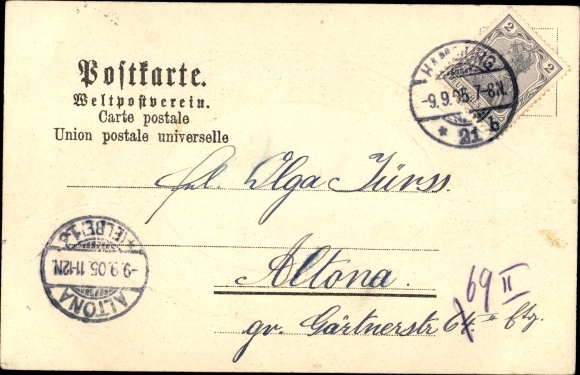 Postkarte.
Weltpostverein.
Carte postale
Union postale universelle
2 2
HAMBURG
-9.9.05.7-8N.
* 21 b
Frl. Olga Jürss.
ALTONA
(ELBE) 1
-9.9.05. 11-12N.
Altona.
69 II
gr. Gärtnerstr. 64. II Etg.